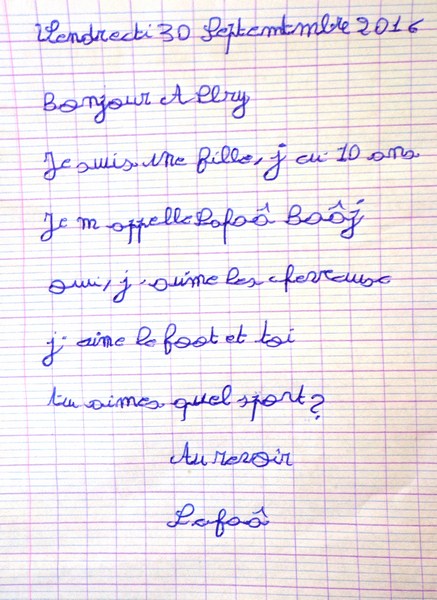 Vendredi 30 Septemtmbre 2016
Bonjour Allry
Je suis une fille, j ai 10 ans
Je m appelle Lafaâ Baâj
oui, j'aime les chevaux
j'aime le foot et toi
tu aimes quel sport?
Au revoir
Lafaâ